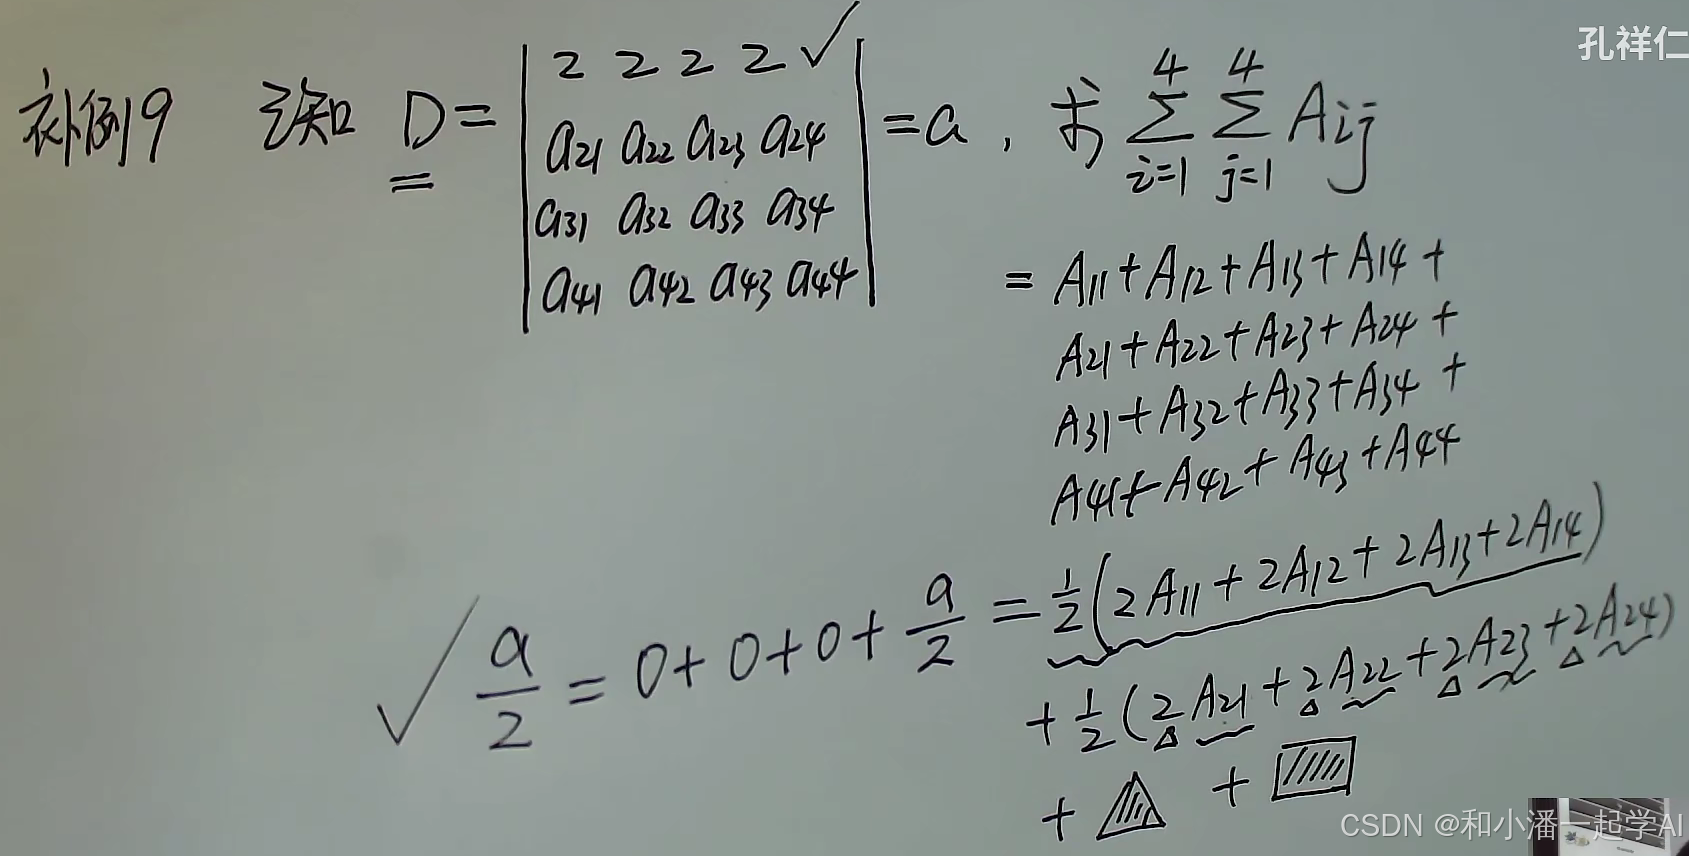 孔祥仁
补例9 已知 D= | 2 2 2 2 ✓ | =a , 求 4∑i=1 4∑j=1 Aij
a21 a22 a23 a24
a31 a32 a33 a34
a41 a42 a43 a44
= A11+A12+A13+A14+
A21+A22+A23+A24+
A31+A32+A33+A34+
A41+A42+A43+A44
√ a/2 = 0+0+0+ a/2 = 1/2(2A11+2A12+2A13+2A14)
+ 1/2(2A21+2A22+2A23+2A24)
+ △ + ▭
CSDN @和小潘一起学AI